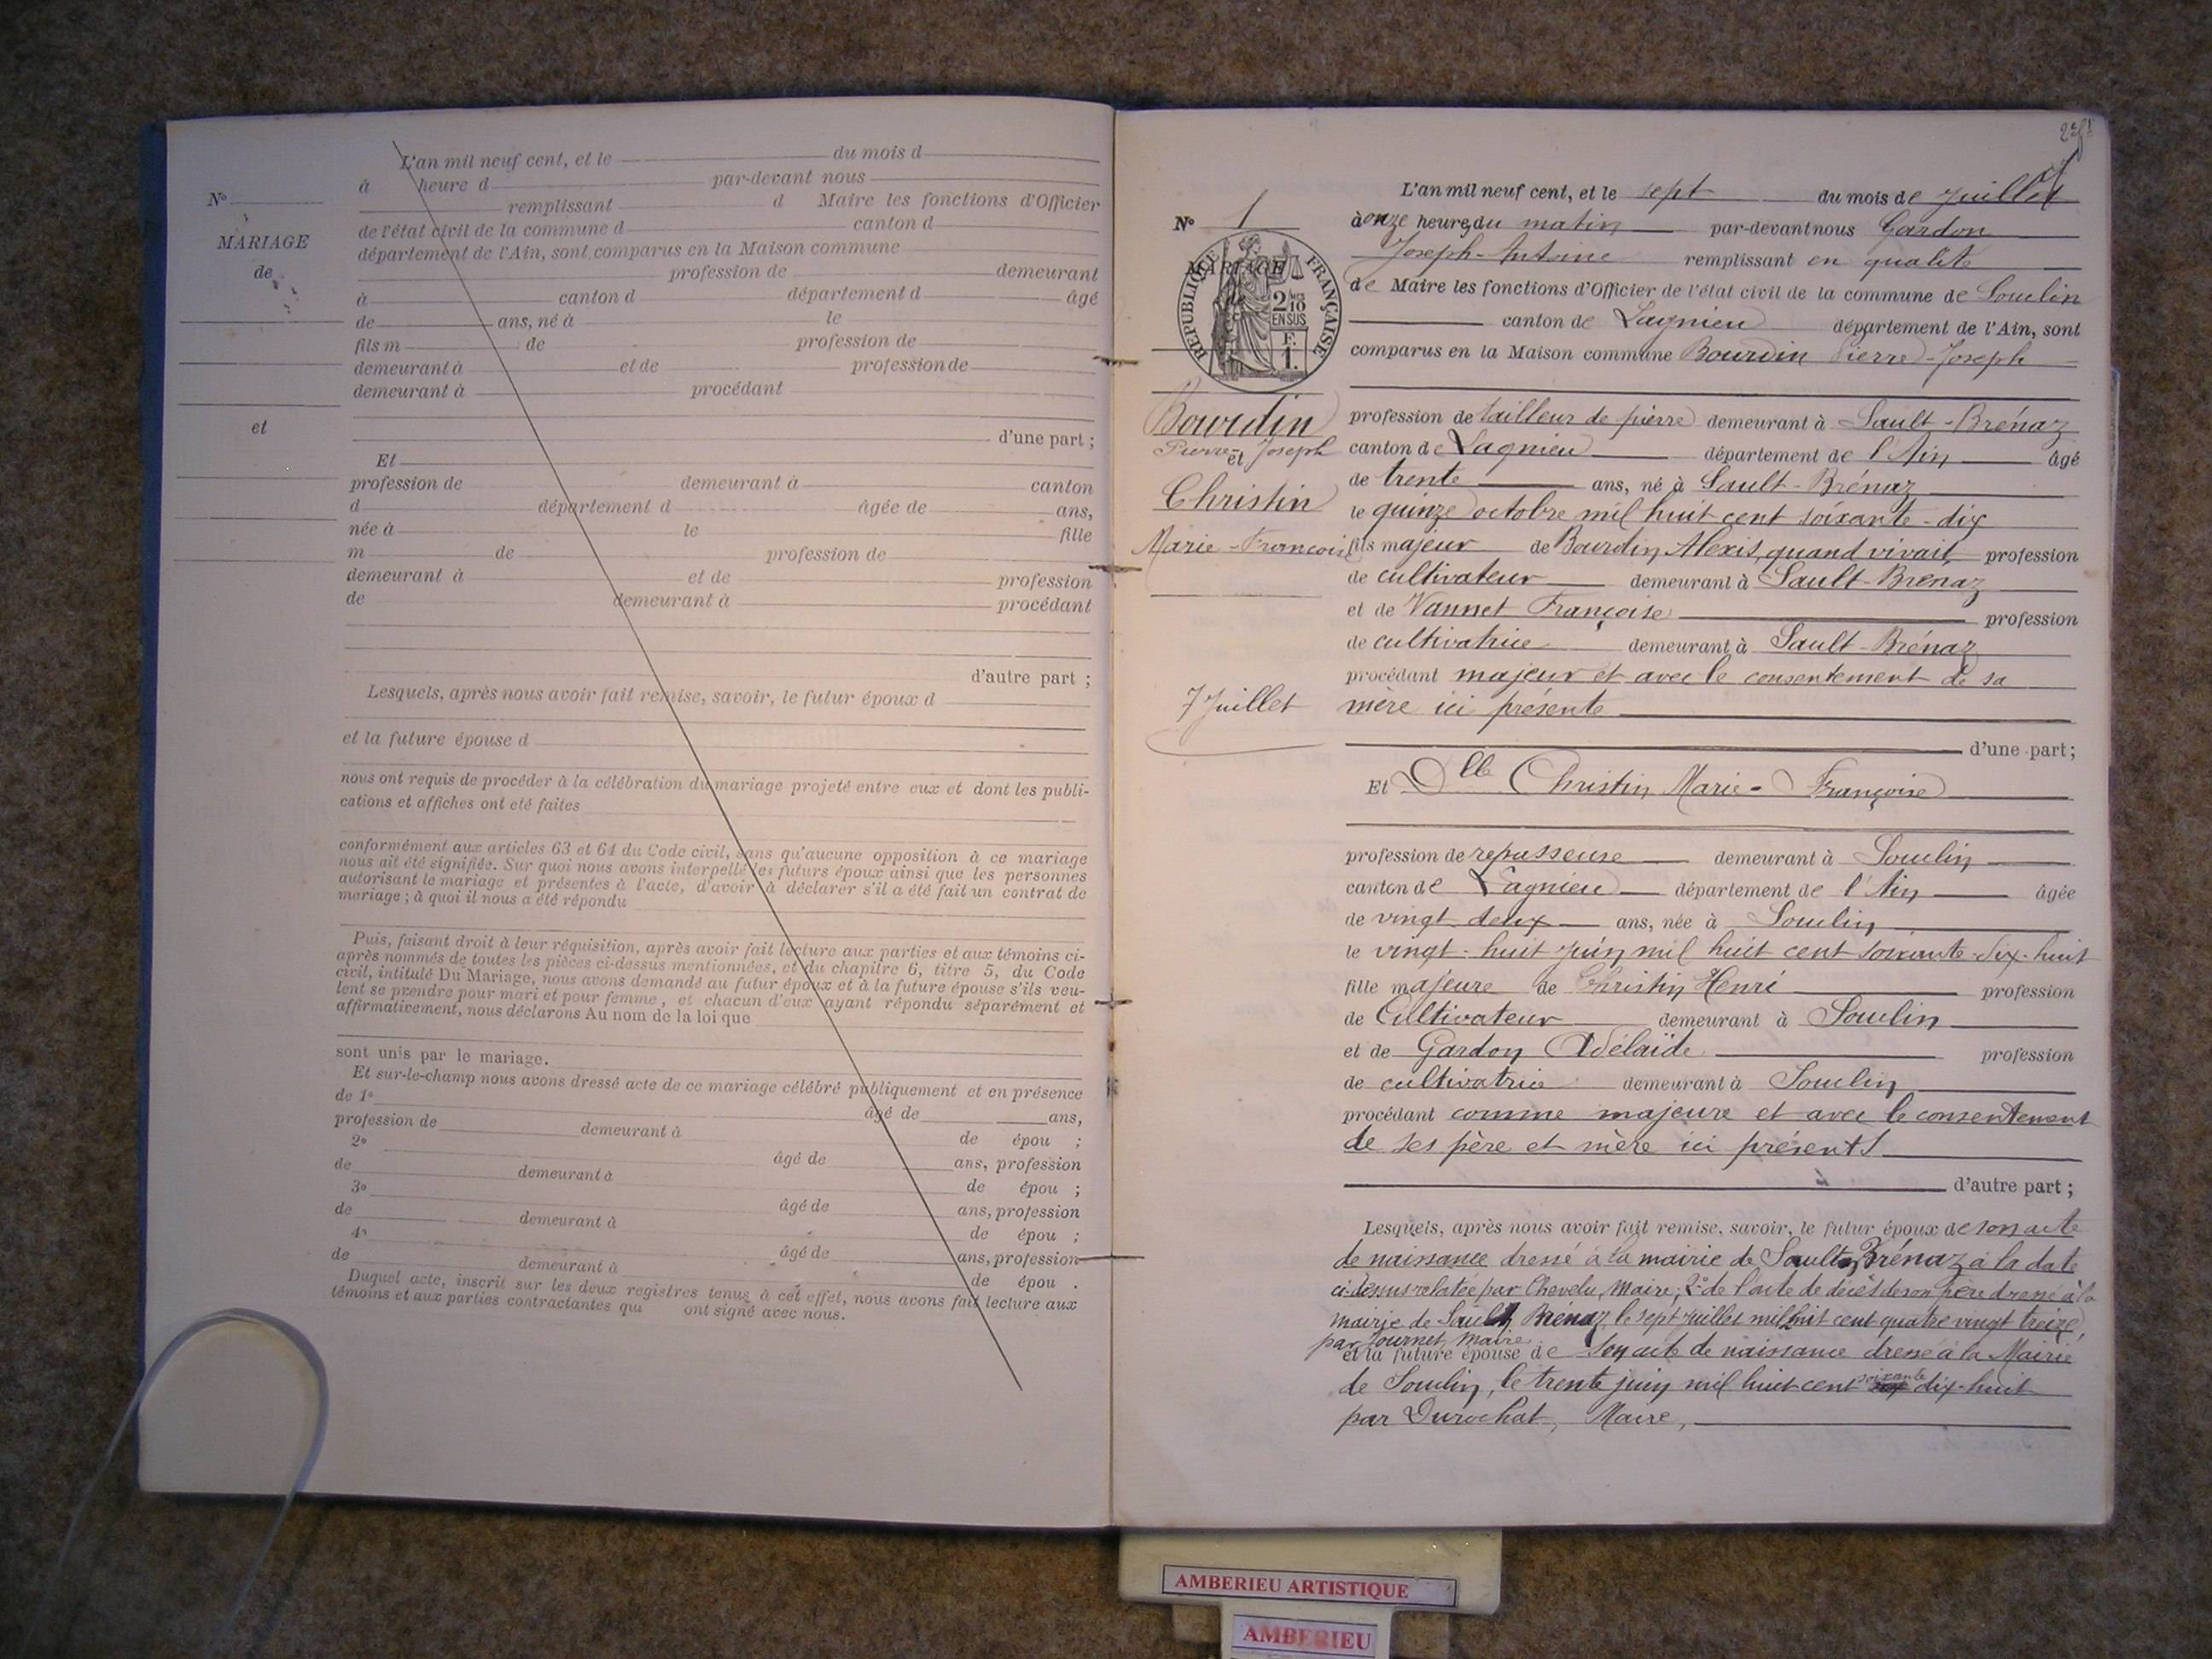 L'an mil neuf cent, et le du mois d
à heure d par-devant nous
remplissant d Maire les fonctions d'Officier
de l'état civil de la commune d canton d
département de l'Ain, sont comparus en la Maison commune
profession de demeurant
à canton d département d âgé
de ans, né à le
fils m de profession de
demeurant à et de profession de
demeurant à procédant
d'une part ;
Et
profession de demeurant à canton
d département d âgée de ans,
née à le fille
m de profession de
demeurant à et de profession
de demeurant à procédant
d'autre part ;
Lesquels, après nous avoir fait remise, savoir, le futur époux d
et la future épouse d
nous ont requis de procéder à la célébration du mariage projeté entre eux et dont les publi-
cations et affiches ont été faites
conformément aux articles 63 et 64 du Code civil, sans qu'aucune opposition à ce mariage
nous ait été signifiée. Sur quoi nous avons interpellé les futurs époux ainsi que les personnes
autorisant le mariage et présentes à l'acte, d'avoir à déclarer s'il a été fait un contrat de
mariage ; à quoi il nous a été répondu
Puis, faisant droit à leur réquisition, après avoir fait lecture aux parties et aux témoins ci-
après nommés de toutes les pièces ci-dessus mentionnées, et du chapitre 6, titre 5, du Code
civil, intitulé Du Mariage, nous avons demandé au futur époux et à la future épouse s'ils veu-
lent se prendre pour mari et pour femme, et chacun d'eux ayant répondu séparément et
affirmativement, nous déclarons Au nom de la loi que
sont unis par le mariage.
Et sur-le-champ nous avons dressé acte de ce mariage célébré publiquement et en présence
de 1° âgé de ans,
profession de demeurant à de épou ;
2° âgé de ans, profession
de demeurant à de épou ;
3° âgé de ans, profession
de demeurant à de épou ;
4° âgé de ans, profession
de demeurant à de épou .
Duquel acte, inscrit sur les deux registres tenus à cet effet, nous avons fait lecture aux
témoins et aux parties contractantes qui ont signé avec nous.
N°
MARIAGE
de
et
N° 1
MARIAGE
REPUBLIQUE FRANÇAISE
2/10 MES
EN SUS
F.
1.
Bourdin
Pierre-Joseph
et
Christin
Marie-Françoise
7 Juillet
L'an mil neuf cent, et le sept du mois de Juillet
à onze heures du matin par-devant nous Gardon
Joseph-Antoine remplissant en qualité
de Maire les fonctions d'Officier de l'état civil de la commune de Souclin
canton de Lagnieu département de l'Ain, sont
comparus en la Maison commune Bourdin Pierre-Joseph
profession de tailleur de pierre demeurant à Sault-Brénaz
canton de Lagnieu département de l'Ain âgé
de trente ans, né à Sault-Brénaz
le quinze octobre mil huit cent soixante-dix
fils majeur de Bourdin Alexis, quand vivait, profession
de cultivateur demeurant à Sault-Brénaz
et de Vannet Françoise profession
de cultivatrice demeurant à Sault-Brénaz
procédant majeur et avec le consentement de sa
mère ici présente
d'une part;
Et Dlle Christin Marie-Françoise
profession de repasseuse demeurant à Souclin
canton de Lagnieu département de l'Ain âgée
de vingt deux ans, née à Souclin
le vingt-huit juin mil huit cent soixante-dix-huit
fille majeure de Christin Henri profession
de Cultivateur demeurant à Souclin
et de Gardon Adélaïde profession
de cultivatrice demeurant à Souclin
procédant comme majeure et avec le consentement
de ses père et mère ici présents
d'autre part ;
Lesquels, après nous avoir fait remise, savoir, le futur époux de son acte
de naissance dressé à la mairie de Sault-Brénaz à la date
ci-dessus relatée par Chevelu, Maire; 2° de l'acte de décès de son père dressé à la
mairie de Sault Brénaz, le sept juillet mil huit cent quatre vingt treize,
par Journet, Maire
et la future épouse de son acte de naissance dressé à la Mairie
de Souclin, le trente juin mil huit cent soixante dix-huit
par Durochat, Maire,
AMBERIEU ARTISTIQUE
AMBERIEU